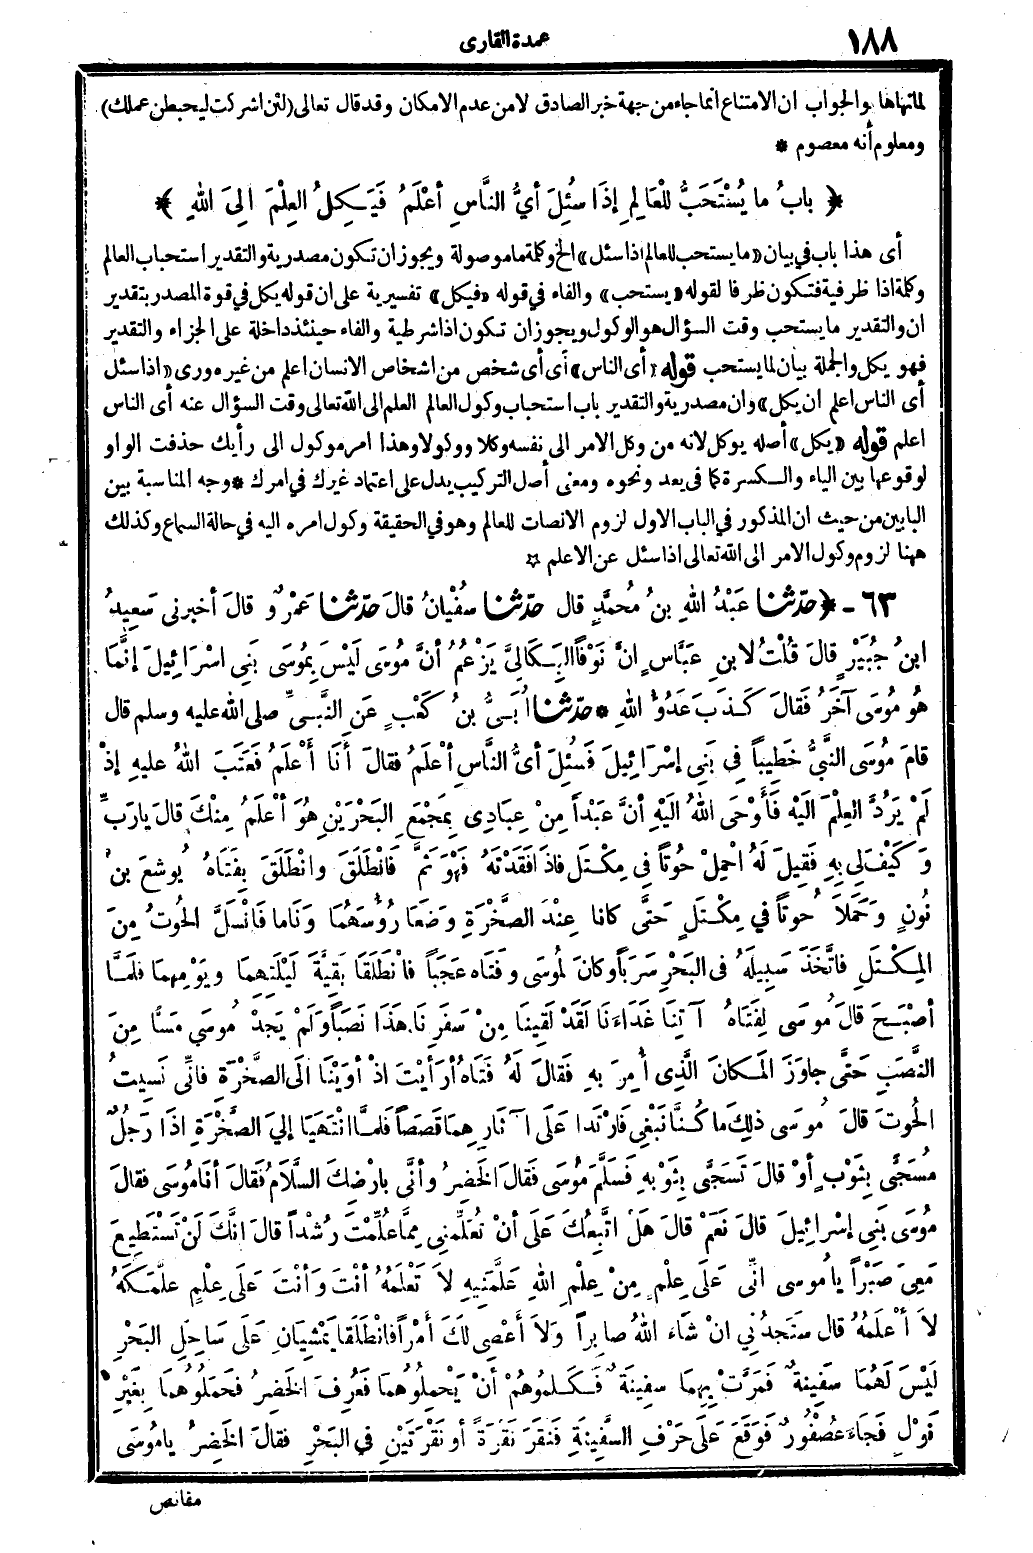 ١٨٨
عمدة القارى
لمانهاها والجواب ان الامتناع انما جاء من جهة خبر الصادق لا من عدم الامكان وقد قال تعالى (لئن اشركت ليحبطن عملك)
ومعلوم أنه معصوم *
﴿ بابُ ما يُسْتَحَبُّ لِلْعَالِمِ إِذَا سُئِلَ أيُّ النَّاسِ أعْلَمُ فَيَكِلُ العِلْمَ الىَ اللهِ ﴾
أى هذا باب فى بيان «ما يستحب للعالم اذا سئل» الخ وكلمة ما موصولة ويجوز ان تكون مصدرية والتقدير استحباب العالم
وكلمة اذا ظرفية فتكون ظرفا لقوله «يستحب» والفاء فى قوله «فيكل» تفسيرية على ان قوله يكل فى قوة المصدر بتقدير
ان والتقدير ما يستحب وقت السؤال هو الوكول ويجوز ان تكون اذا شرطية والفاء حينئذ داخلة على الجزاء والتقدير
فهو يكل والجملة بيان لما يستحب قوله «أى الناس» أى أى شخص من اشخاص الانسان اعلم من غيره وروى «اذا سئل
أى الناس اعلم ان يكل» وان مصدرية والتقدير باب استحباب وكول العالم العلم الى الله تعالى وقت السؤال عنه أى الناس
اعلم قوله «يكل» أصله يوكل لانه من وكل الامر الى نفسه وكلا ووكولا وهذا امر موكول الى رأيك حذفت الواو
لوقوعها بين الياء والكسرة كما فى يعد ونحوه ومعنى أصل التركيب يدل على اعتماد غيرك فى امرك * وجه المناسبة بين
البابين من حيث ان المذكور فى الباب الاول لزوم الانصات للعالم وهو فى الحقيقة وكول امره اليه فى حالة السماع وكذلك
ههنا لزوم وكول الامر الى الله تعالى اذا سئل عن الاعلم ☆
٦٣ - ﴿ حدّثنا عَبْدُ اللهِ بنُ مُحمَّدٍ قال حدّثنا سُفْيانُ قالَ حدّثنا عَمْرٌو قالَ أخبرنى سَعِيدُ
ابنُ جُبَيْرٍ قالَ قُلْتُ لابنِ عَبَّاسٍ انَّ نَوْفاً البِكَالِيَّ يَزْعُمُ أنَّ مُوسَى لَيْسَ بِمُوسَى بَنِى اسْرَائِيلَ إنَّمَا
هُوَ مُوسَى آخَرُ فَقَالَ كَذَبَ عَدُوُّ اللهِ * حدّثنا أُبَىُّ بنُ كَعْبٍ عَنِ النَّبىِّ صلى الله عليه وسلم قال
قامَ مُوسَى النَّبيُّ خَطِيباً فِى بَنِى إسْرَائِيلَ فَسُئِلَ أىُّ النَّاسِ أعْلَمُ فقالَ أنَا أعْلَمُ فَعَتَبَ اللهُ عليهِ إذْ
لَمْ يَرُدَّ العِلْمَ اليْهِ فَأَوْحَى اللهُ اليْهِ أنَّ عَبْداً مِنْ عِبَادِى بِمَجْمَعِ البَحْرَيْنِ هُوَ أعْلَمُ مِنْكَ قالَ يارَبِّ
وَكَيْفَ لِى بِهِ فَقِيلَ لَهُ احْمِلْ حُوتاً فى مِكْتَلٍ فاذَا فَقَدْتَهُ فَهْوَ ثَمَّ فَانْطَلَقَ وانْطَلَقَ بِفَتَاهُ يُوشَعَ بنِ
نُونٍ وَحَمَلاَ حُوتاً في مِكْتَلٍ حَتَّى كانا عِنْدَ الصَّخْرَةِ وَضَعَا رُؤُسَهُمَا وَنَاما فَانْسَلَّ الحُوتُ مِنَ
المِكْتَلِ فاتَّخَذَ سَبِيلَهُ فى البَحْرِ سَرَباً وكانَ لمُوسَى وفَتَاه عَجَباً فانْطَلَقَا بَقِيَّةَ لَيْلَتِهِما ويَوْمِهِما فلمَّا
أصْبَحَ قالَ مُوسَى لِفَتَاهُ آتِنَا غَدَاءَنَا لَقَدْ لَقِينَا مِنْ سَفَرِنَا هَذَا نَصَباً وَلَمْ يَجِدْ مُوسَي مَسًّا مِنَ
النَّصَبِ حَتَّى جاوَزَ المَكانَ الَّذِى أُمِرَ بِهِ فَقالَ لَهُ فَتَاهُ أرَأَيْتَ اذْ أوَيْنَا الَى الصَّخْرَةِ فانِّى نَسِيتُ
الحُوتَ قالَ مُوسَى ذلِكَ ما كُنَّا نَبْغِى فَارْتَدا عَلَى آثَارِهِما قَصَصاً فلمَّا انْتَهَيَا إلي الصَّخْرَةِ اذَا رَجُلٌ
مُسَجًّى بِثَوْبٍ أوْ قالَ تَسَجَّى بِثَوْبِهِ فَسَلَّمَ مُوسَى فَقالَ الخَضِرُ وأنَّى بارْضِكَ السَّلاَمُ فَقالَ أنَا مُوسَى فقالَ
مُوسَى بَنِى إسْرائِيلَ قالَ نَعَمْ قالَ هَلْ اتَّبِعُكَ عَلَى أنْ تُعَلِّمَنِى مِمَّا عُلِّمْتَ رُشْداً قالَ انَّكَ لَنْ تَسْتَطِيعَ
مَعِىَ صَبْراً يا مُوسى انِّى عَلَى عِلْمٍ مِنْ عِلْمِ اللهِ عَلَّمَنِيهِ لاَ تَعْلَمُهُ أنْتَ وَأنْتَ عَلَى عِلْمٍ علَّمَكَهُ
لاَ أعْلَمُهُ قال سَتَجِدُنِي انْ شَاءَ اللهُ صابِراً وَلاَ أَعْصِى لَكَ أمْراً فانْطَلَقا يَمْشِيانِ عَلَى سَاحِلِ البَحْرِ
لَيْسَ لَهُمَا سَفِينةٌ فَمَرَّتْ بِهِما سفِينةٌ فَكَلمُوهُمْ أنْ يَحْمِلُوهُما فَعُرِفَ الخَضِرُ فحَمَلُوهُما بِغَيْرِ
نَوْلٍ فَجَاءَ عُصْفُورٌ فَوَقَعَ عَلَى حَرْفِ السَّفِينَةِ فَنَقَرَ نَقْرَةً أو نَقْرَتَيْنِ فِي البَحْرِ فَقالَ الخَضِرُ يا مُوسَى
مانقص